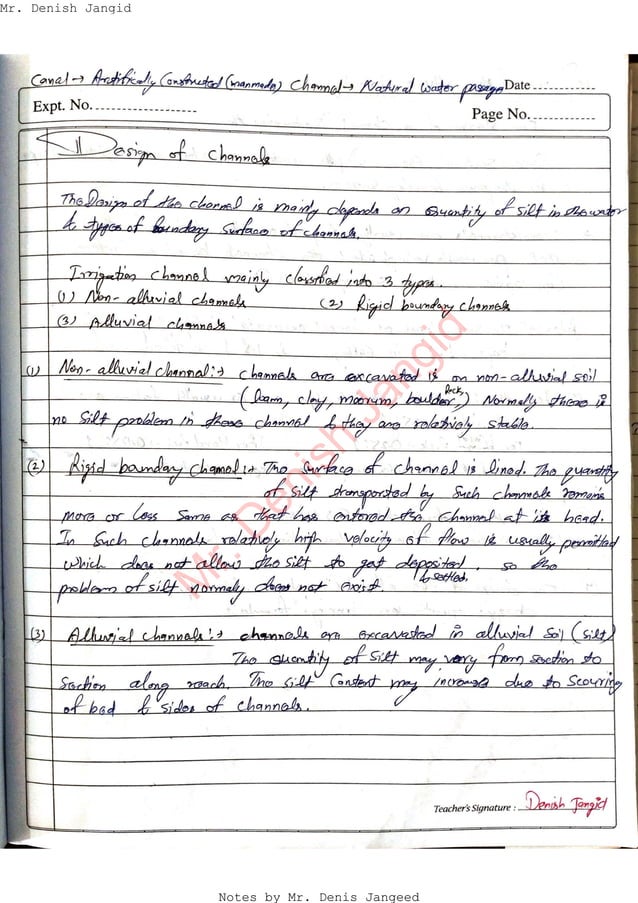 Mr. Denish Jangid
Canal → Artifically Constructed (manmade) Channel → Natural water passage Date
Expt. No.
Page No.
Design of channels
The Design of the channel is mainly depends on Quantity of silt in the water
& types of boundary surface of channels.
Irrigation channel mainly classified into 3 types.
(1) Non-alluvial channels (2) Rigid boundary channels
(3) Alluvial channels
(1) Non-alluvial channel :→ channels are excavated is on non-alluvial soil
(loam, clay, moorum, boulder, Rock,) Normally there is
no silt problem in these channel & they are relatively stable.
(2) Rigid boundary channel :→ The surface of channel is lined. The quantity
of silt transported by such channels remains
more or less same as that has entered the channel at its head.
In such channels relatively high velocity of flow is usually permitted
which does not allow the silt to get deposited & settled. so the
problem of silt normally does not exist.
(3) Alluvial channels :→ channels are excavated in alluvial soil (silt)
The Quantity of silt may vary from section to
section along reach. The silt content may increase due to scouring
of bed & sides of channels.
Teacher's Signature : Denish Jangid
Mr. Denish Jangid
Notes by Mr. Denis Jangeed